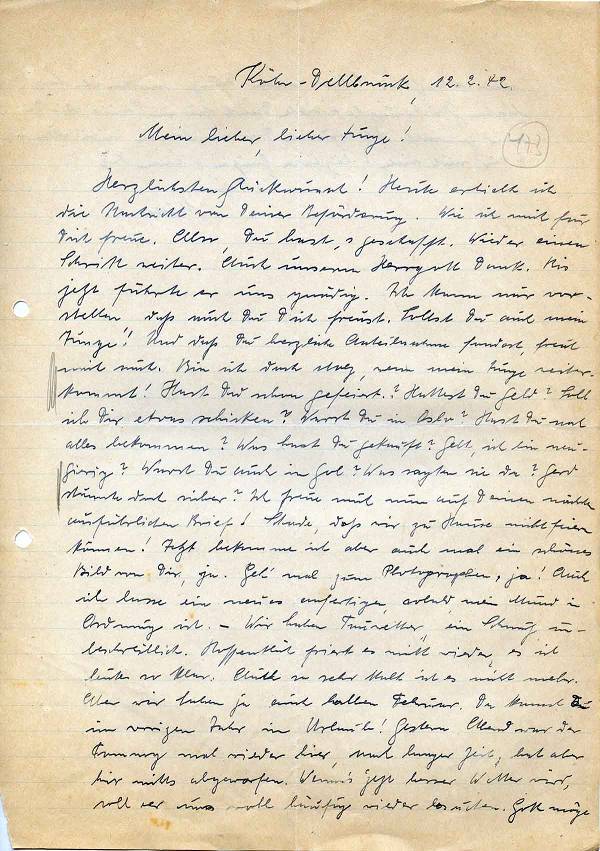 Köln-Dellbrück, 12.2.42.
173
Mein lieber, lieber Junge!
Herzlichsten Glückwunsch! Heute erhielt ich
die Nachricht von Deiner Beförderung. Wie ich mich für
Dich freue. Also, Du hast's geschafft. Wieder einen
Schritt weiter. Auch unserm Herrgott Dank. Bis
jetzt führte er uns gnädig. Ich kann mir vor-
stellen daß auch Du Dich freust. Sollst Du auch mein
Junge! Und daß Du herzliche Anteilnahme fandest, freut
mich auch. Bin ich doch stolz, wenn mein Junge weiter-
kommt! Hast Du schon gefeiert? Hattest Du Geld? Soll
ich Dir etwas schicken? Warst Du in Oslo? Hast Du
alles bekommen? Was hast Du gekauft? Gelt, ich bin neu-
gierig? Warst Du auch in Gol? Was sagten sie da? Gerd
staunte doch sicher? Ich freue mich nun auf Deinen nächsten
ausführlichen Brief! Schade, daß wir zu Hause nicht feiern
können! Jetzt bekomme ich aber auch mal ein schönes
Bild von Dir, ja. Geh' mal zum Photographen, ja! Auch
ich lasse ein neues anfertigen, sobald mein Mund in
Ordnung ist. – Wir haben Tauwetter, ein Schmutz un-
beschreiblich. Hoffentlich friert es nicht wieder, es ist
heute so klar. Aber so sehr kalt ist es nicht mehr.
Aber wir haben ja auch halben Februar. Da kamst Du
im vorigen Jahr in Urlaub! Gestern Abend war der
Tommy mal wieder hier, nach langer Zeit, hat aber
hier nichts abgeworfen. Wenn's jetzt besser Wetter wird,
soll er uns wohl häufig wieder besuchen. Gott möge